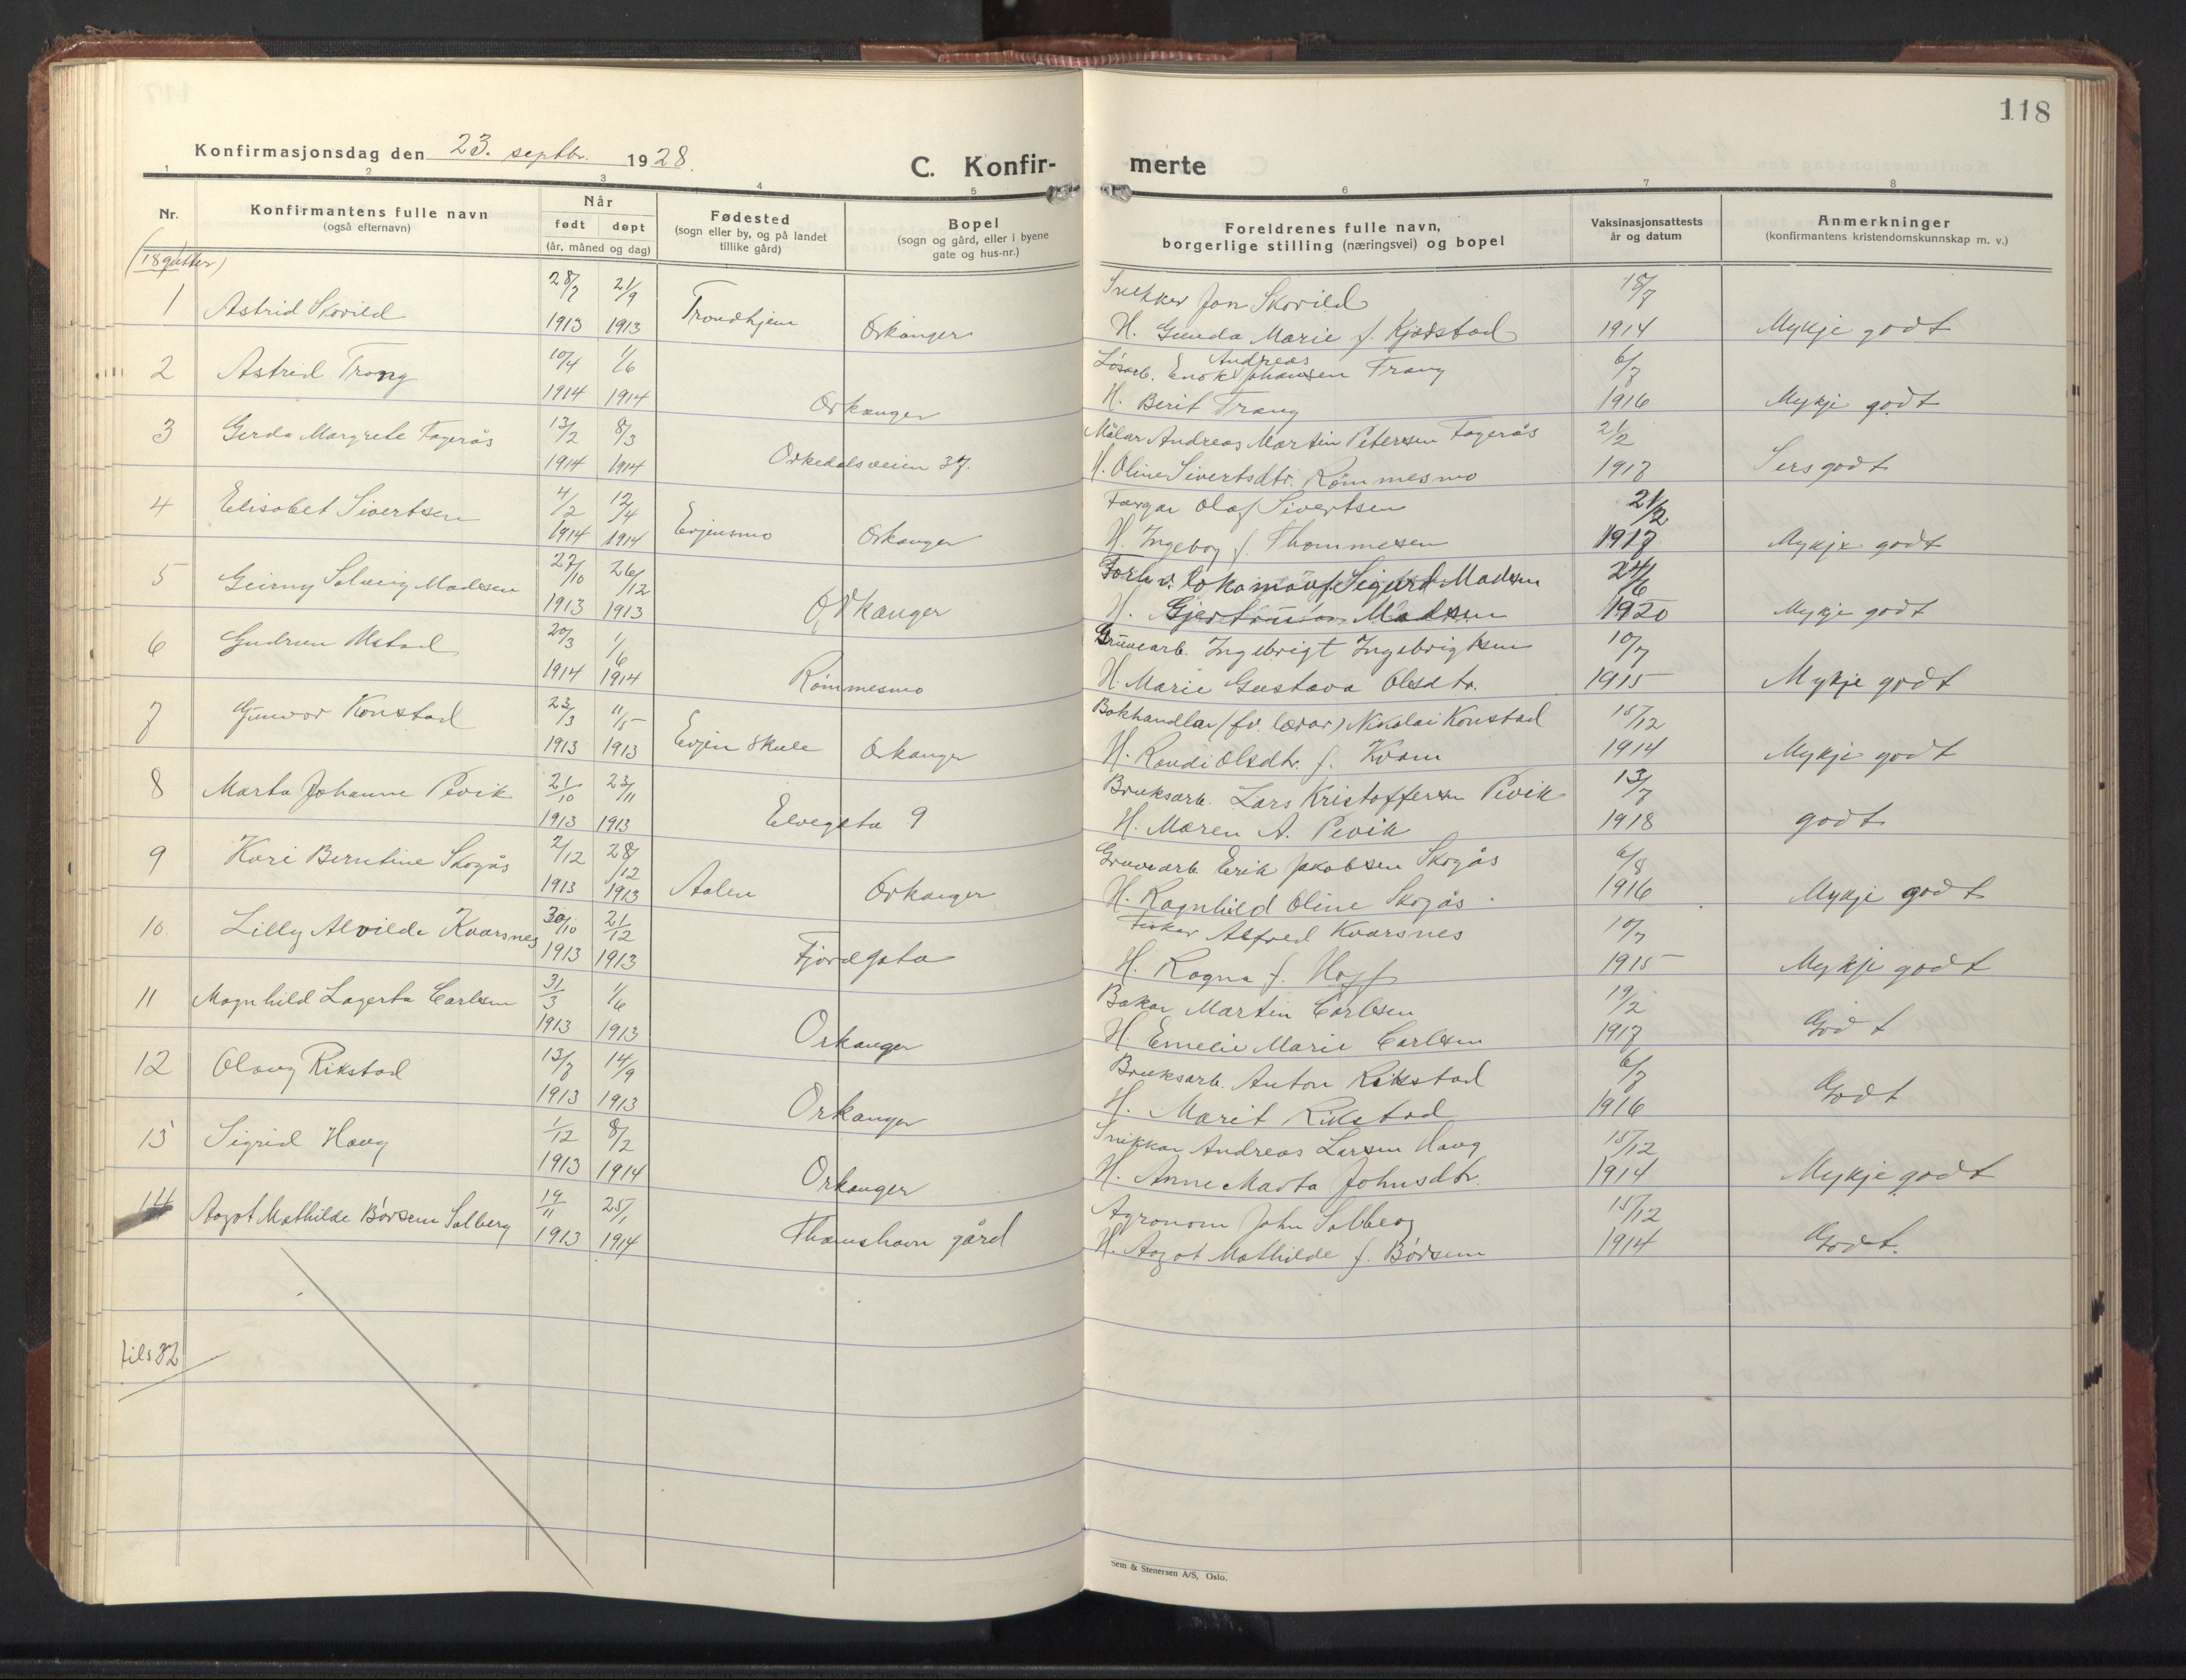 118
Konfirmasjonsdag den 23. septbr. 1928.
C. Konfir-
merte
1 2 3 4 5 6 7 8
Nr.
Konfirmantens fulle navn
(også efternavn)
Når
født døpt
(år, måned og dag)
Fødested
(sogn eller by, og på landet
tillike gård)
Bopel
(sogn og gård, eller i byene
gate og hus-nr.)
Foreldrenes fulle navn,
borgerlige stilling (næringsvei) og bopel
Vaksinasjonsattests
år og datum
Anmerkninger
(konfirmantens kristendomskunnskap m. v.)
(18 gutter)
1 Astrid Skorild 28/7 21/9 Trondhjem Orkanger Snekker Jon Skorild 18/7
1913 1913 H. Gunda Marie f. Kjøsstad 1914 Mykje godt
2 Astrid Trang 10/4 1/6 Orkanger Løsarb. Enok Andreas Johansen Trang 6/7
1914 1914 H. Berit Trang 1916 Mykje godt
3 Gerda Margrete Fagerås 13/2 8/3 Orkedalsveien 37. Målar Andreas Martin Petersen Fagerås 21/2
1914 1914 H. Oline Sivertsdtr. Rømmesmo 1917 Sers godt
4 Elisabet Sivertsen 4/2 12/4 Evjensmo Orkanger Fargar Olaf Sivertsen 21/2
1914 1914 H. Ingebog f. Thommesen 1917 Mykje godt
5 Geirny Solveig Madsen 27/10 26/12 Orkanger Forh.v. lokomotivf. Sigurd Madsen 24/6
1913 1913 H. Gjertrud Madsen 1920 Mykje godt
6 Gudrun Ustad 20/3 1/6 Rømmesmo Gruvearb. Ingebrigt Ingebrigtsen 10/7
1914 1914 H. Marie Gustava Olsdtr. 1915 Mykje godt
7 Gunvor Konstad 23/3 11/5 Evjen skule Orkanger Bokhandlar (fv. lærar) Nikolai Konstad 15/12
1913 1913 H. Randi Olsdtr. f. Kvam 1914 Mykje godt
8 Marta Johanne Pevik 21/10 23/11 Elvegata 9 Bruksarb. Lars Kristoffersen Pevik 13/7
1913 1913 H. Maren A. Pevik 1918 godt
9 Kari Berntine Skogås 2/12 28/12 Aalen Orkanger Gruvearb. Erik Jakobsen Skogås 6/8
1913 1913 H. Ragnhild Oline Skogås 1916 Mykje godt
10. Lilly Alvilde Kvarsnes 30/10 21/12 Fjordgata Fisker Alfred Kvarsnes 10/7
1913 1913 H. Ragna f. Hoff 1915 Mykje godt
11 Magnhild Lagerta Carlsen 31/3 1/6 Orkanger Bakar Martin Carlsen 19/2
1913 1913 H. Emelie Marie Carlsen 1917 Godt
12 Olaug Rikstad 13/7 14/9 Orkanger Bruksarb. Anton Rikstad 6/7
1913 1913 H. Marit Rikstad 1916 Godt
13 Sigrid Haug 1/12 8/2 Orkanger Snikkar Andreas Larsen Haug 15/12
1913 1914 H. Anne Marta Johnsdtr. 1914 Mykje godt
14 Aagot Mathilde Børsem Solberg 19/11 25/1 Thamshavn gård Agronom John Solberg 15/12
1913 1914 H. Aagot Mathilde f. Børsem 1914 Godt.
tils 32
Sem & Stenersen A/S, Oslo.